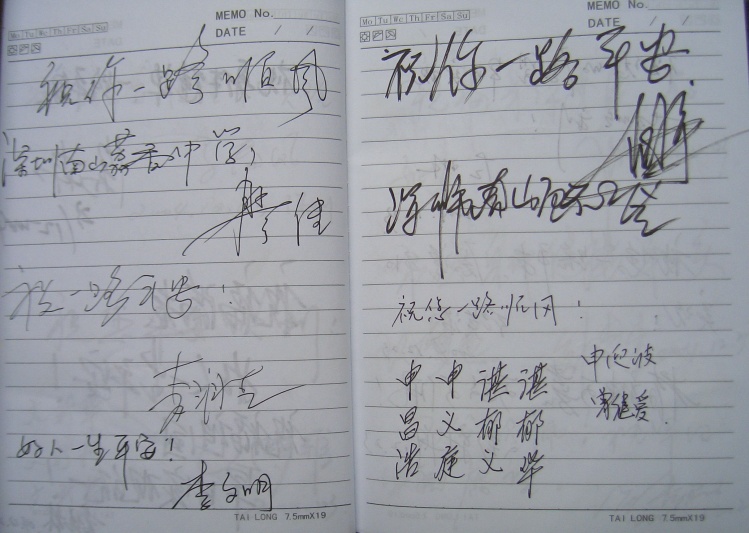 MEMO No.
Mo Tu We Th Fr Sa Su
DATE / /
祝你一路顺风
深圳南山荔香中学
祝一路平安!
好人一生平安!
李文明
TAI LONG 7.5mmX19
MEMO No.
Mo Tu We Th Fr Sa Su
DATE / /
祝你一路平安.
深圳南山
祝您一路顺风!
申 申 谌 谌
昌 义 郁 郁
浩 庭 义 华
申迎波
TAI LONG 7.5mmX19